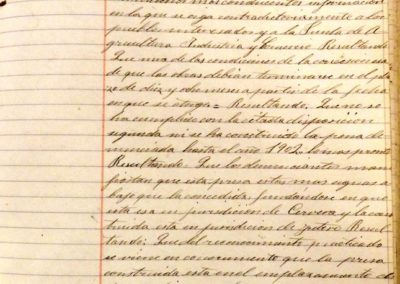 más conducentes información
en la que se oiga contradictoriamente a los
pueblos interesados y a la Junta de A
gricultura Industria y Comercio Resultando
Que una de las condiciones de la concesion era
de que las obras debian terminarse en el pla
zo de diez y ocho meses a partir de la fecha
en que se otorga = Resultando. Que no se
ha cumplido con la citada disposicion
segunda ni se ha construido la presa de
nunciada hasta el año 1902 lo mas pronto
Resultando. Que los denunciantes mani
fiestan que esta presa esta mas aguas a
bajo que la concedida, fundandose en que
esta era en jurisdicion de Cervera y la cons
truida esta en jurisdicion de Resul
tando: Que del reconocimiento practicado
se viene en conocimiento que la presa
construida esta en el emplazamiento de